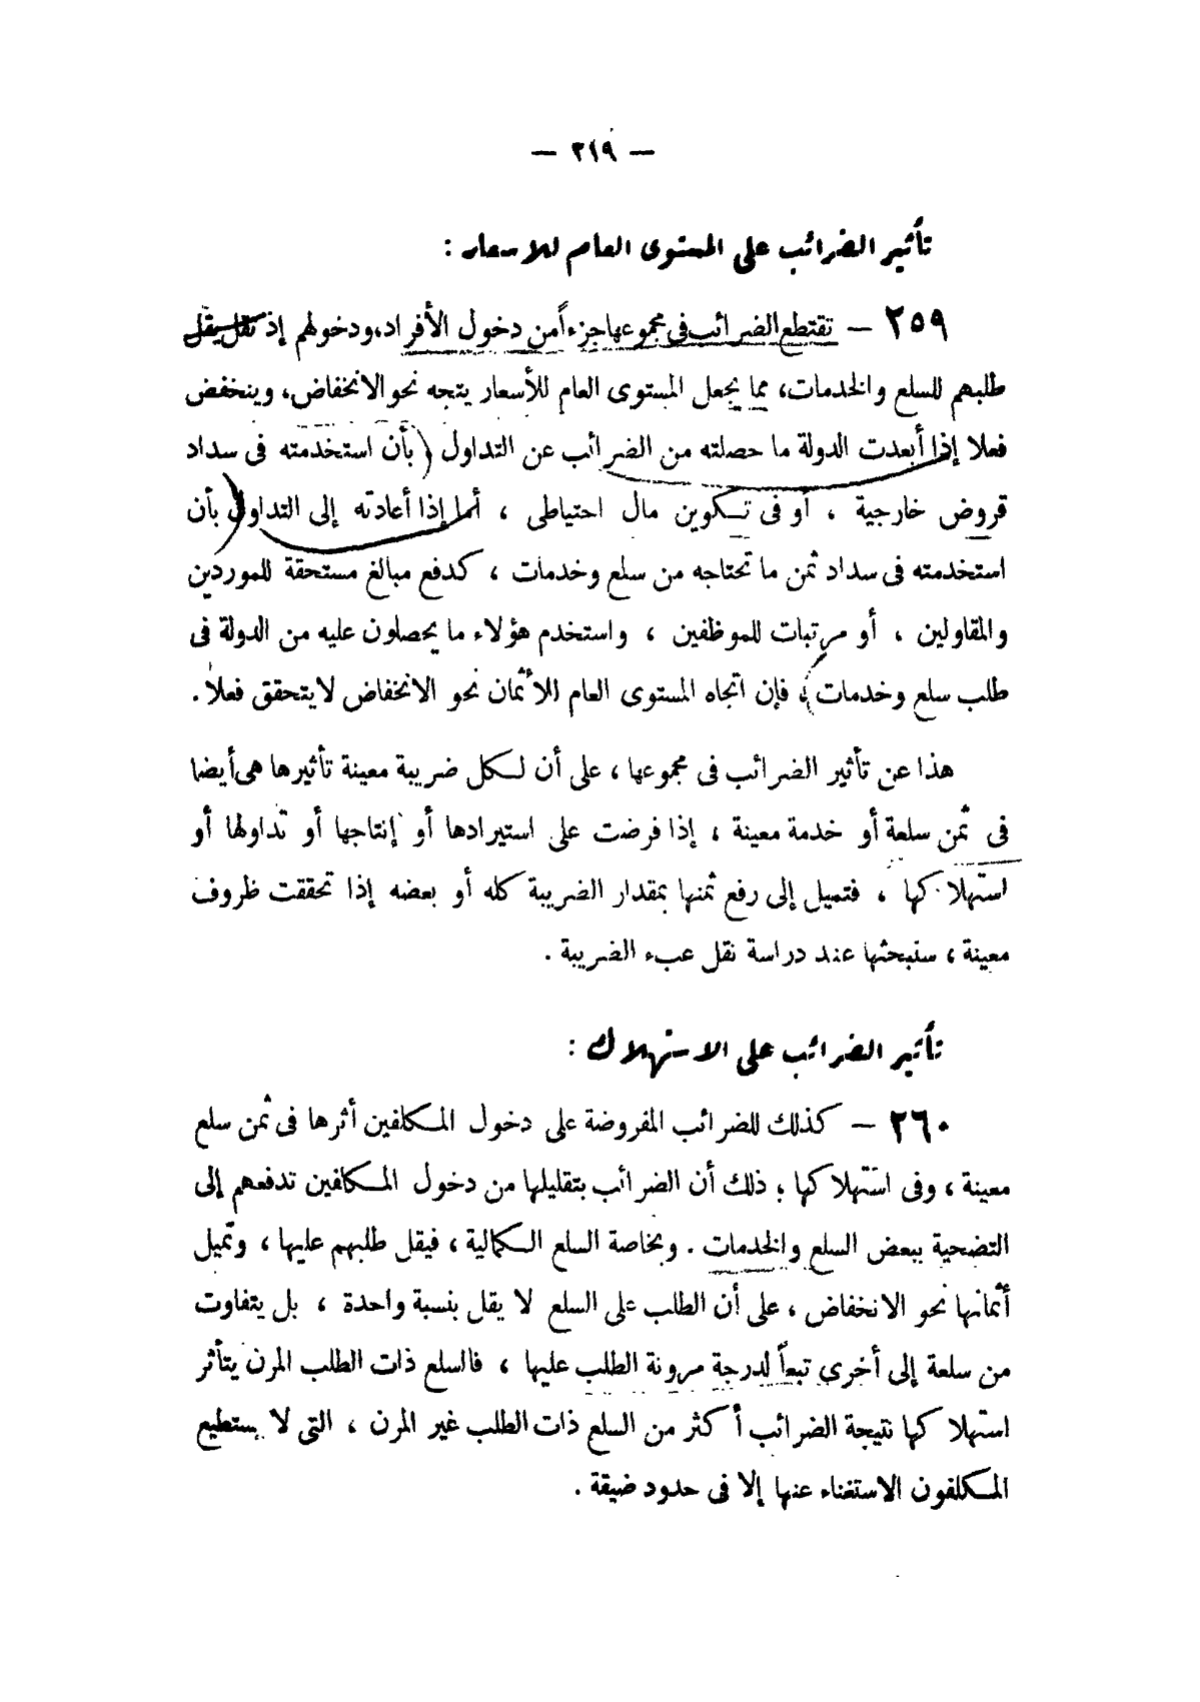 — ٣١٩ —
تأثير الضرائب على المستوى العام للاسعار :
٢٥٩ — تقتطع الضرائب فى مجموعها جزءاً من دخول الأفراد، ودخولهم إذ تقل يقل
طلبهم للسلع والخدمات، مما يجعل المستوى العام للأسعار يتجه نحو الانخفاض، وينخفض
فعلا إذا أبعدت الدولة ما حصلته من الضرائب عن التداول (بأن استخدمته فى سداد
قروض خارجية ، أو فى تكوين مال احتياطى ، أما إذا أعادته إلى التداول (بأن
استخدمته فى سداد ثمن ما تحتاجه من سلع وخدمات ، كدفع مبالغ مستحقة للموردين
والمقاولين ، أو مرتبات للموظفين ، واستخدم هؤلاء ما يحصلون عليه من الدولة فى
طلب سلع وخدمات) ، فإن اتجاه المستوى العام للأثمان نحو الانخفاض لا يتحقق فعلا .
هذا عن تأثير الضرائب فى مجموعها ، على أن لكل ضريبة معينة تأثيرها هى أيضا
فى ثمن سلعة أو خدمة معينة ، إذا فرضت على استيرادها أو إنتاجها أو تداولها أو
استهلاكها ، فتميل إلى رفع ثمنها بمقدار الضريبة كله أو بعضه إذا تحققت ظروف
معينة ، سنبحثها عند دراسة نقل عبء الضريبة .
تأثير الضرائب على الاستهلاك :
٢٦٠ — كذلك للضرائب المفروضة على دخول المكلفين أثرها فى ثمن سلع
معينة ، وفى استهلاكها ؛ ذلك أن الضرائب بتقليلها من دخول المكلفين تدفعهم إلى
التضحية ببعض السلع والخدمات . وبخاصة السلع الكمالية ، فيقل طلبهم عليها ، وتميل
أثمانها نحو الانخفاض ، على أن الطلب على السلع لا يقل بنسبة واحدة ، بل يتفاوت
من سلعة إلى أخرى تبعاً لدرجة مرونة الطلب عليها ، فالسلع ذات الطلب المرن يتأثر
استهلاكها نتيجة الضرائب أكثر من السلع ذات الطلب غير المرن ، التى لا يستطيع
المكلفون الاستغناء عنها إلا فى حدود ضيقة .